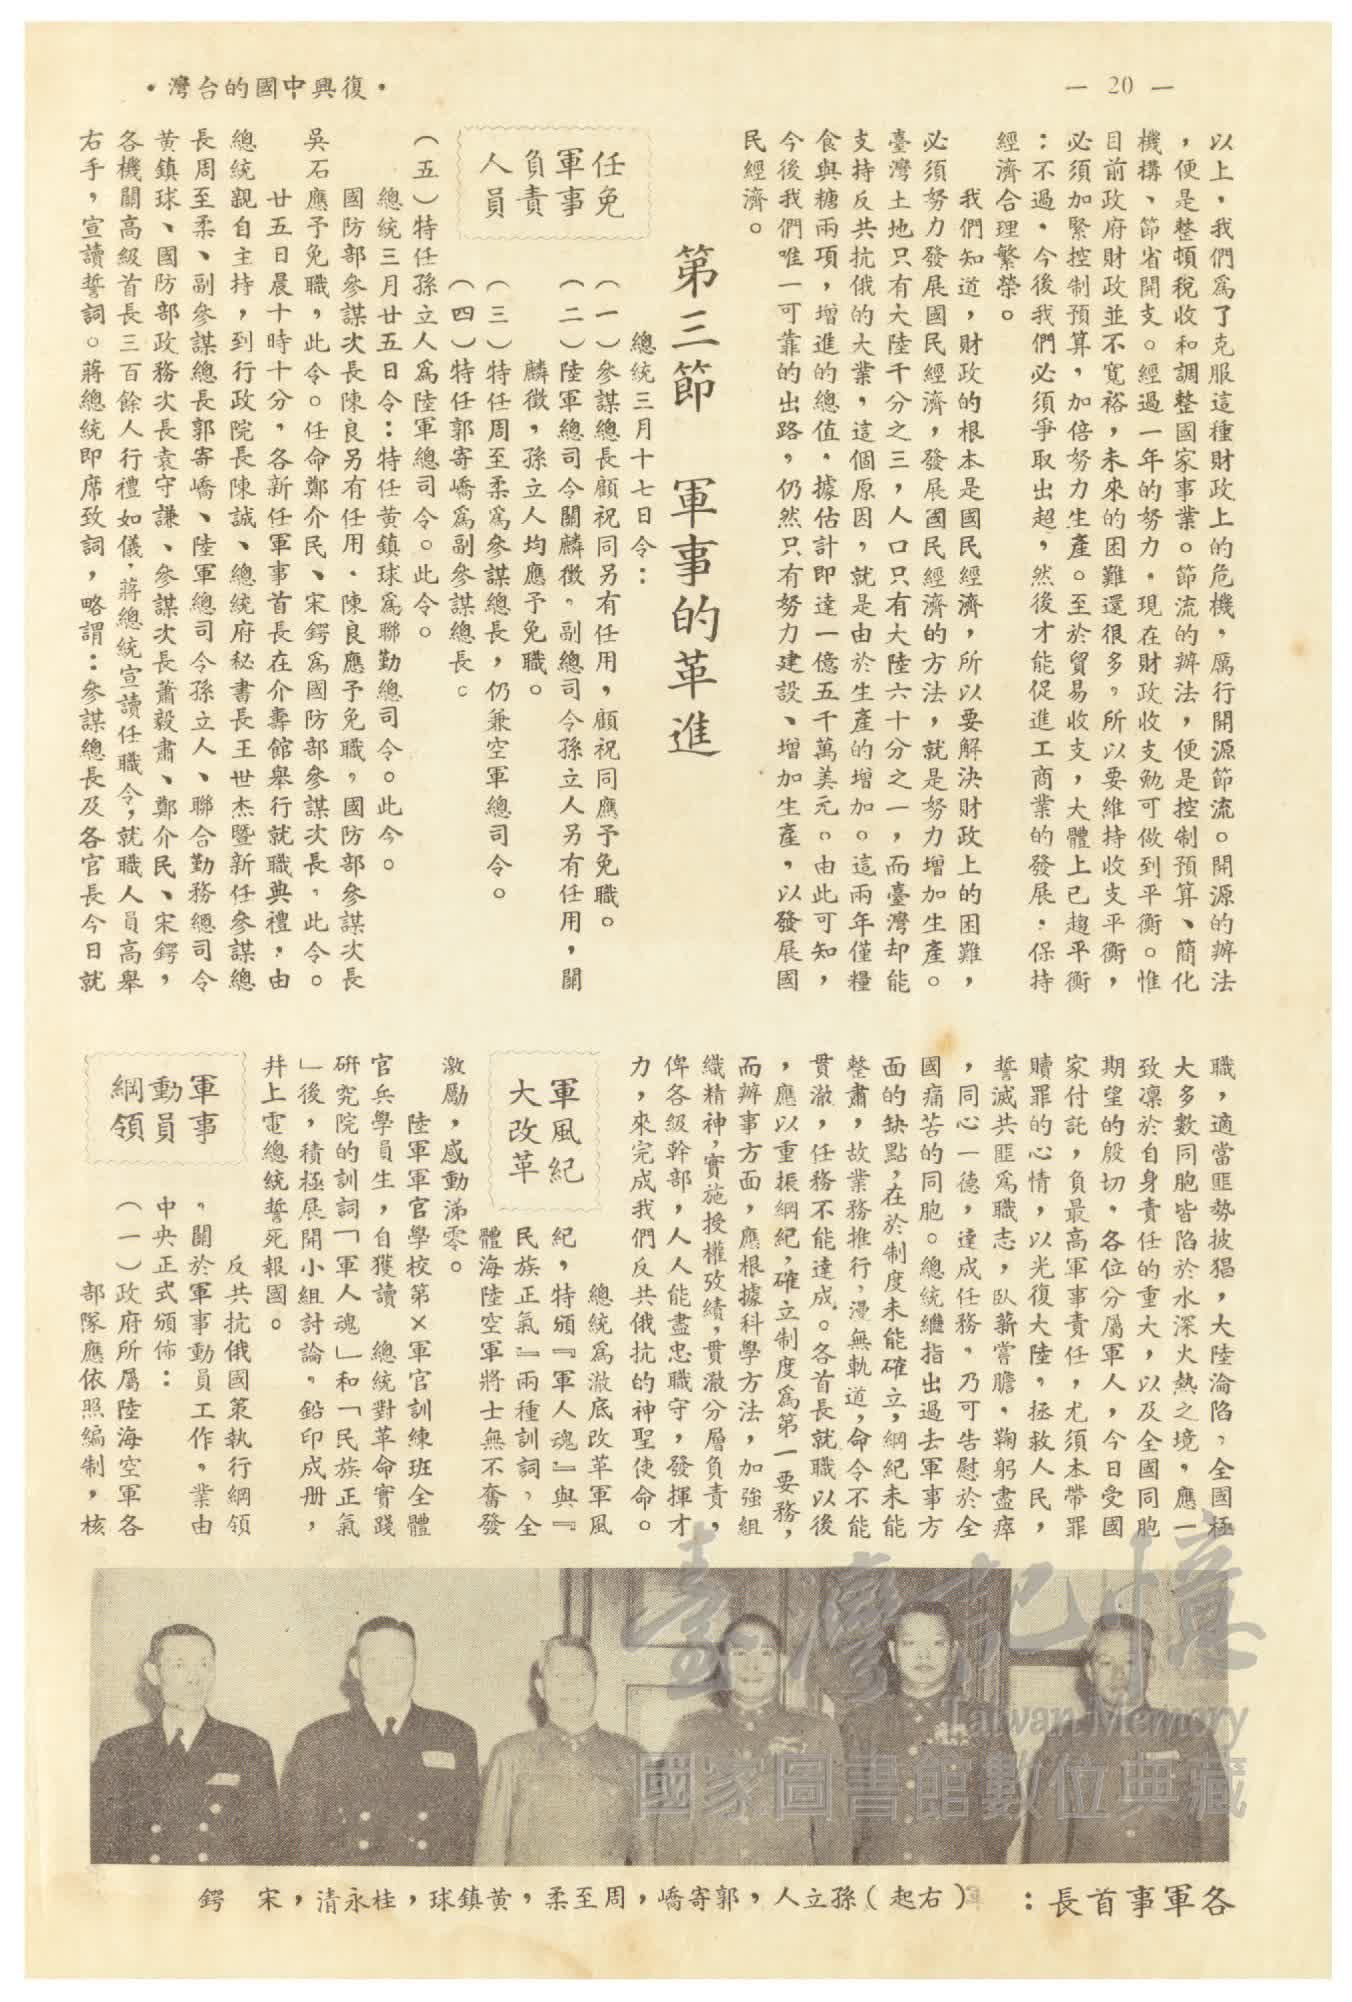 — 20 —
·復興中國的台灣·
以上，我們爲了克服這種財政上的危機，厲行開源節流。開源的辦法
，便是整頓稅收和調整國家事業。節流的辦法，便是控制預算、簡化
機構、節省開支。經過一年的努力，現在財政收支勉可做到平衡。惟
目前政府財政並不寬裕，未來的困難還很多，所以要維持收支平衡，
必須加緊控制預算，加倍努力生產。至於貿易收支，大體上已趨平衡
：不過，今後我們必須爭取出超，然後才能促進工商業的發展，保持
經濟合理繁榮。
我們知道，財政的根本是國民經濟，所以要解決財政上的困難，
必須努力發展國民經濟，發展國民經濟的方法，就是努力增加生產。
臺灣土地只有大陸千分之三，人口只有大陸六十分之一，而臺灣却能
支持反共抗俄的大業，這個原因，就是由於生產的增加。這兩年僅糧
食與糖兩項，增進的總值，據估計即達一億五千萬美元。由此可知，
今後我們唯一可靠的出路，仍然只有努力建設、增加生產，以發展國
民經濟。
第三節　軍事的革進
任免
軍事
負責
人員
總統三月十七日令：
（一）參謀總長顧祝同另有任用，顧祝同應予免職。
（二）陸軍總司令關麟徵，副總司令孫立人另有任用，關
麟徵，孫立人均應予免職。
（三）特任周至柔爲參謀總長，仍兼空軍總司令。
（四）特任郭寄嶠爲副參謀總長。
（五）特任孫立人爲陸軍總司令。此令。
總統三月廿五日令：特任黄鎮球爲聯勤總司令。此令。
國防部參謀次長陳良另有任用，陳良應予免職，國防部參謀次長
吳石應予免職，此令。任命鄭介民、宋鍔爲國防部參謀次長，此令。
廿五日晨十時十分，各新任軍事首長在介壽館舉行就職典禮，由
總統親自主持，到行政院長陳誠、總統府秘書長王世杰暨新任參謀總
長周至柔、副參謀總長郭寄嶠、陸軍總司令孫立人、聯合勤務總司令
黄鎮球、國防部政務次長袁守謙、參謀次長蕭毅肅、鄭介民、宋鍔，
各機關高級首長三百餘人行禮如儀，蔣總統宣讀任職令，就職人員高舉
右手，宣讀誓詞。蔣總統即席致詞，略謂：參謀總長及各官長今日就
職，適當匪勢披猖，大陸淪陷，全國極
大多數同胞皆陷於水深火熱之境，應一
致凛於自身責任的重大，以及全國同胞
期望的殷切，各位分屬軍人，今日受國
家付託，負最高軍事責任，尤須本帶罪
贖罪的心情，以光復大陸，拯救人民，
誓滅共匪爲職志，臥薪嘗膽，鞠躬盡瘁
，同心一德，達成任務，乃可告慰於全
國痛苦的同胞。總統繼指出過去軍事方
面的缺點，在於制度未能確立，綱紀未能
整肅，故業務推行，漫無軌道，命令不能
貫澈，任務不能達成。各首長就職以後
，應以重振綱紀，確立制度爲第一要務，
而辦事方面，應根據科學方法，加強組
織精神，實施授權攷績，貫澈分層負責，
俾各級幹部，人人能盡忠職守，發揮才
力，來完成我們反共俄抗的神聖使命。
軍風紀
大改革
總統爲澈底改革軍風
紀，特頒『軍人魂』與『
民族正氣』兩種訓詞，全
體海陸空軍將士無不奮發
激勵，感動涕零。
陸軍軍官學校第×軍官訓練班全體
官兵學員生，自獲讀　總統對革命實踐
硏究院的訓詞「軍人魂」和「民族正氣
」後，積極展開小組討論，鉛印成册，
幷上電總統誓死報國。
軍事
動員
綱領
反共抗俄國策執行綱領
，關於軍事動員工作，業由
中央正式頒佈：
（一）政府所屬陸海空軍各
部隊應依照編制，核
各軍事首長：（右起）孫立人，郭寄嶠，周至柔，黄鎮球，桂永清，宋　鍔
臺灣記憶
Taiwan Memory
國家圖書館數位典藏